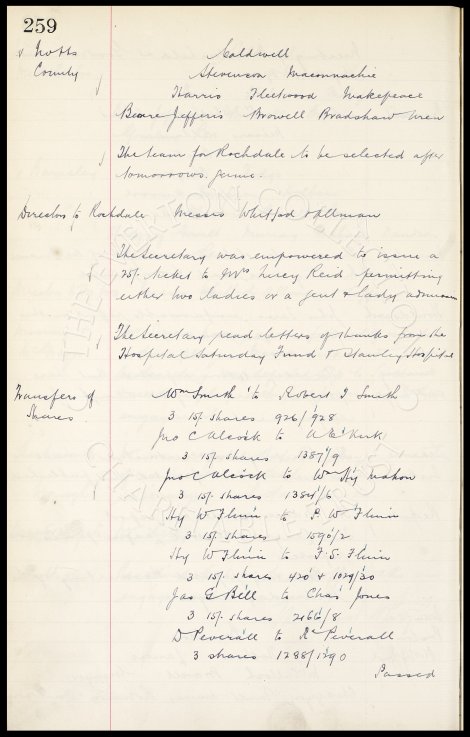 259
v Notts
County
Caldwell
Stevenson Maconnachie
Harris Fleetwood Makepeace
Beare Jefferis Browell Bradshaw Wren
The team for Rochdale to be selected after
tomorrows game.
Directors to Rochdale
Messrs Whitford & Allman
The Secretary was empowered to issue a
25/- ticket to Mrs Lucy Reid permitting
either two ladies or a gent & lady admission
The Secretary read letters of thanks from the
Hospital Saturday Fund & Stanley Hospital
Transfers of
Shares
Wm Smith to Robert J Smith
3 15/- shares 926/928
Jno C Alcock to Kirk
3 15/- shares 1387/9
Jno C Alcock to Wm Hy Mahon
3 15/- shares 1384/6
Hy W Flinn to P. W Flinn
3 15/- shares 1590/2
Hy W Flinn to F. S. Flinn
3 15/- shares 420 & 1029/30
Jas G Bell to Chas Jones
3 15/- shares 2166/8
D Peverall to Rt Peverall
3 shares 1288/1290
Passed
THE EVERTON COLLECTION
CHARITABLE TRUST